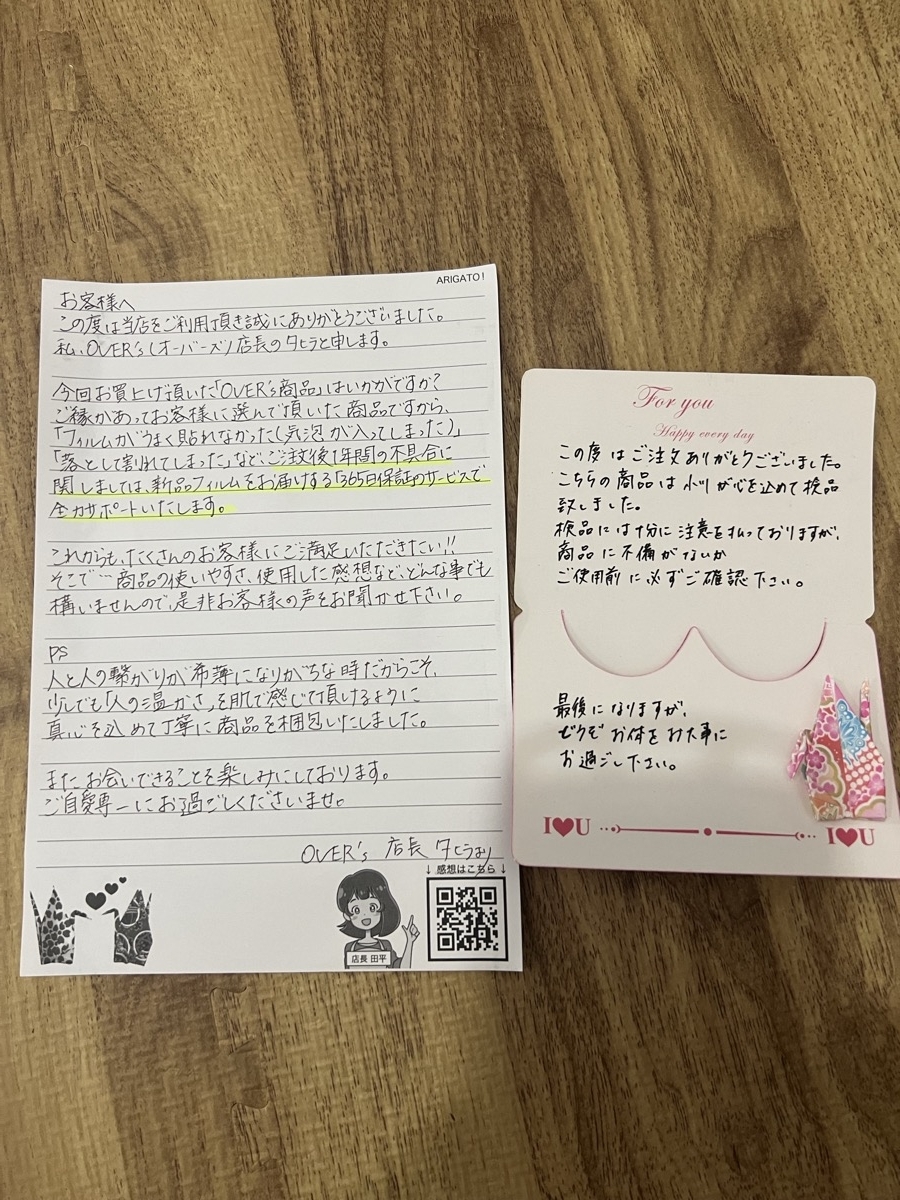 ARIGATO!
お客様へ
この度は当店をご利用頂き誠にありがとうございました。
私、OVER's(オーバーズ)店長のタヒラと申します。
今回お買上げ頂いた「OVER's商品」はいかがですか?
ご縁があってお客様に選んで頂いた商品ですから、
「フィルムがうまく貼れなかった(気泡が入ってしまった)」
「落として割れてしまった」など、ご注文後1年間の不具合に
関しましては、新品フィルムをお届けする「365日保証」のサービスで
全力サポートいたします。
これからも、たくさんのお客様にご満足いただきたい!!
そこで…商品の使いやすさ、使用した感想など、どんな事でも
構いませんので、是非お客様の声をお聞かせ下さい。
PS
人と人の繋がりが希薄になりがちな時だからこそ、
少しでも「人の温かさ」を肌で感じて頂けるように
真心を込めて丁寧に商品を梱包いたしました。
またお会いできることを楽しみにしております。
ご自愛専一にお過ごしくださいませ。
OVER's 店長 タヒラより
↓ 感想はこちら ↓
店長 田平
For you
Happy every day
この度はご注文ありがとうございました。
こちらの商品は小川が心を込めて検品
致しました。
検品には十分に注意を払っておりますが、
商品に不備がないか
ご使用前に必ずご確認下さい。
最後になりますが、
どうぞお体をお大事に
お過ごし下さい。
I♥U
I♥U